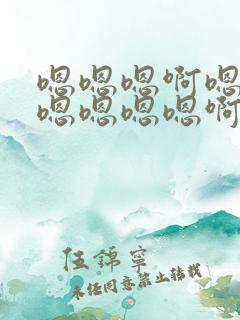 嗯嗯嗯啊嗯
嗯嗯嗯嗯啊
任锦宁
未经同意禁止转载